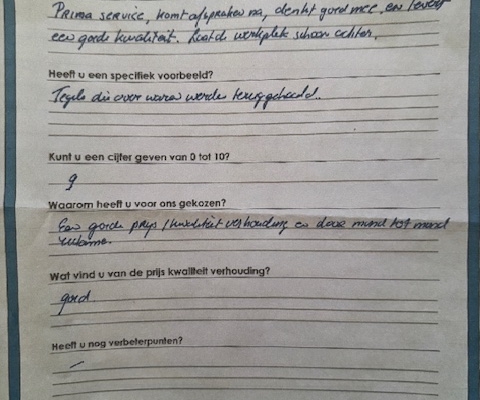 Prima service, komt afspraken na, denkt goed mee en levert
een goede kwaliteit. Laat de werkplek schoon achter.
Heeft u een specifiek voorbeeld?
Tegels die over waren werden teruggehaald.
Kunt u een cijfer geven van 0 tot 10?
9
Waarom heeft u voor ons gekozen?
Een goede prijs / kwaliteit verhouding en door mond tot mond
reclame.
Wat vind u van de prijs kwaliteit verhouding?
goed
Heeft u nog verbeterpunten?
—